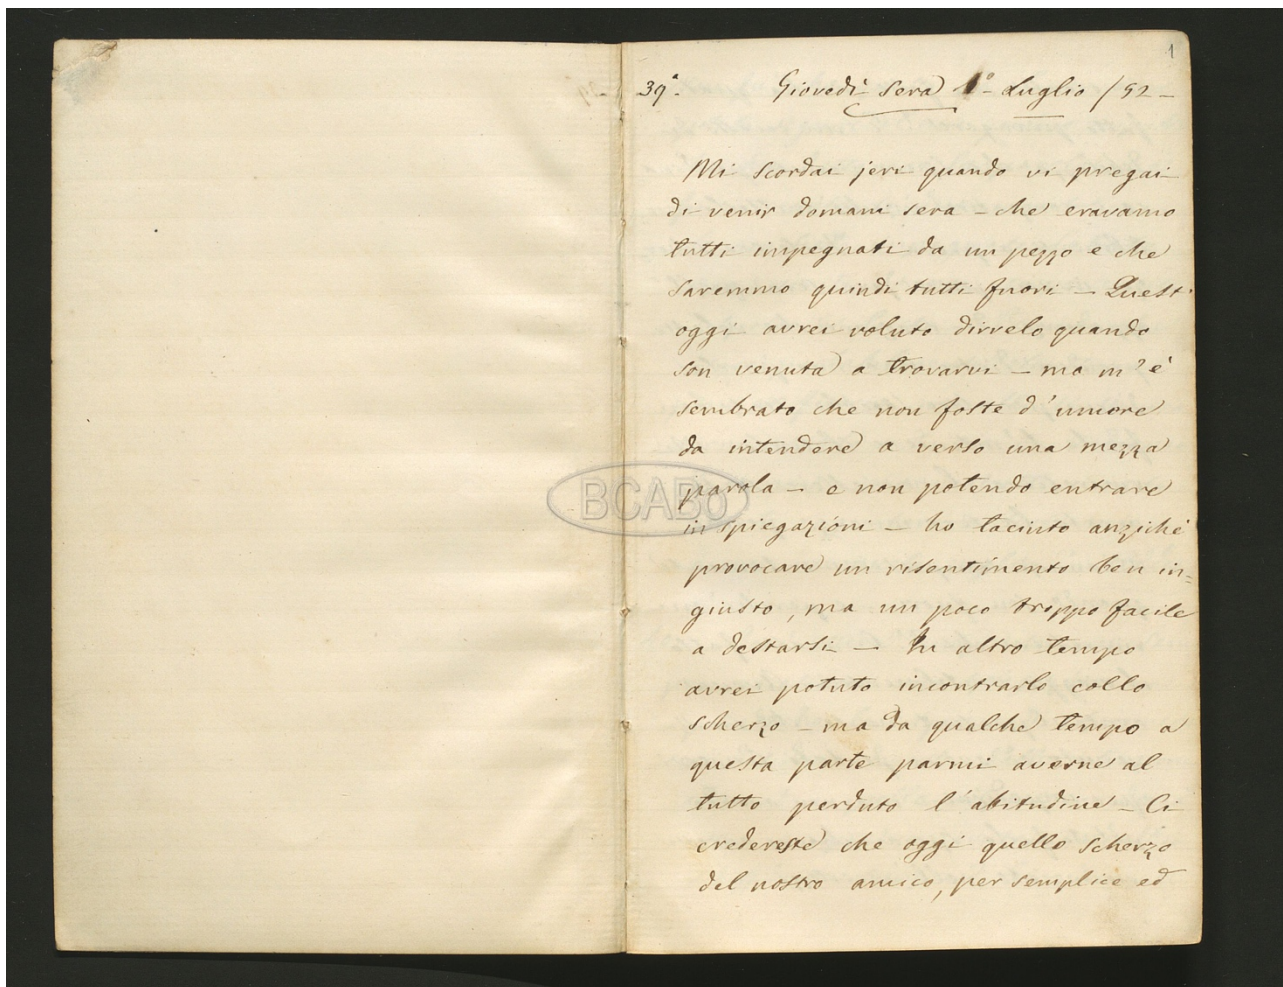 1
39ª. Giovedì sera 1º Luglio /52 –
Mi scordai jeri quando vi pregai
di venir domani sera – che eravamo
tutti impegnati da un pezzo e che
saremmo quindi tutti fuori – Quest'
oggi avrei voluto dirvelo quando
son venuta a trovarvi – ma m'è
sembrato che non foste d'umore
da intendere a verso una mezza
parola – e non potendo entrare
in spiegazioni – ho taciuto anzichè
provocare un risentimento ben in=
giusto, ma un poco troppo facile
a destarsi – In altro tempo
avrei potuto incontrarlo collo
scherzo – ma da qualche tempo a
questa parte parmi averne al
tutto perduto l'abitudine – Ci
credereste che oggi quello scherzo
del nostro amico, per semplice ed
BCABo